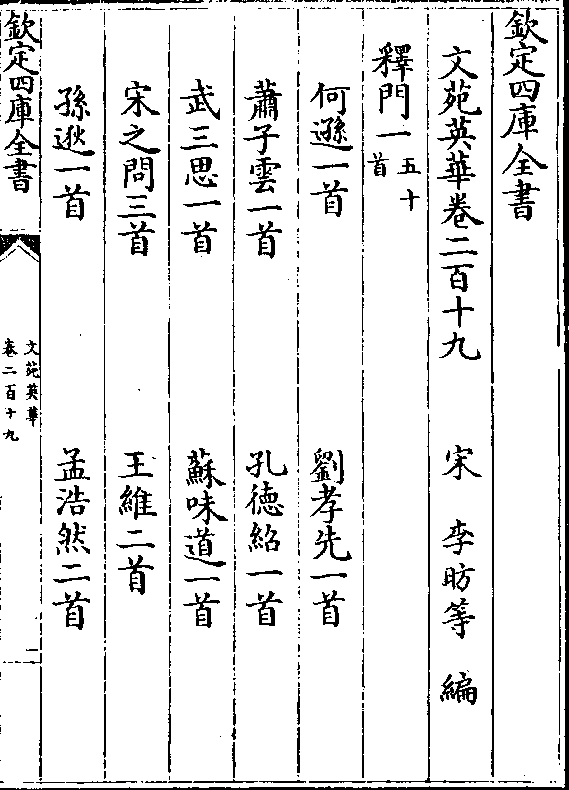 欽定四庫全書
文苑英華卷二百十九　宋　李昉等　編
釋門一五十首
何遜一首　劉孝先一首
蕭子雲一首　孔德紹一首
武三思一首　蘇味道一首
宋之問三首　王維二首
孫逖一首　孟浩然二首
欽定四庫全書
文苑英華
卷二百十九
一